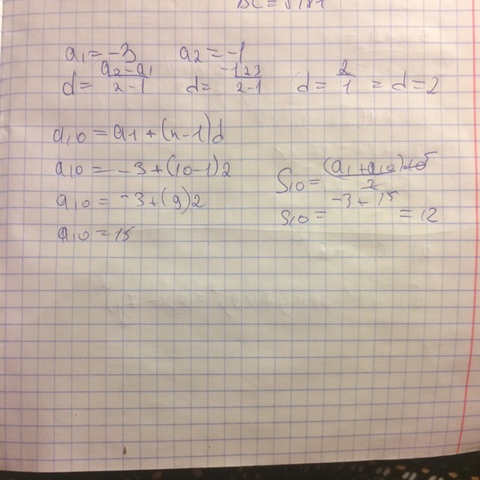 BC = √181
a₁ = -3 a₂ = -1
d = (a₂ - a₁)/(2-1) d = (-1+3)/(2-1) d = 2/1 = d = 2
a₁₀ = a1 + (n-1)d
a₁₀ = -3 + (10-1)2
a₁₀ = -3 + (9)2
a₁₀ = 15
S₁₀ = (a₁ + a₁₀)·10⁵/2
S₁₀ = -3 + 15 = 12